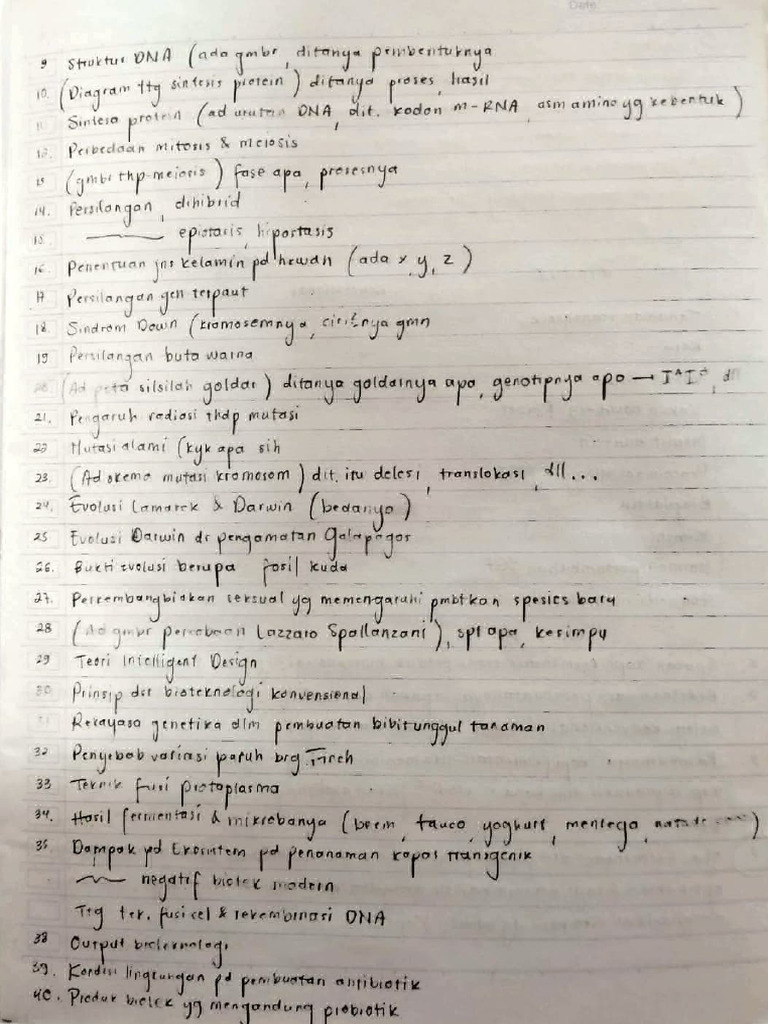 Date
9 Struktur DNA (ada gmbr, ditanya pembentuknya
10. (Diagram ttg sintesis protein) ditanya proses, hasil
11 Sintesa protein (ad urutan DNA, dit. kodon m-RNA, asm amino yg kebentuk)
12. Perbedaan mitosis & meiosis
13 (gmbr thp-meiosis) fase apa, prosesnya
14. Persilangan, dihibrid
15 epistasis, hipostasis
16. Penentuan jns kelamin pd hewan (ada x, y, z)
17 Persilangan gen terpaut
18. Sindrom Down (kromosomnya, ciri²nya gmn
19 Persilangan buta warna
20. (Ad peta silsilah goldar) ditanya goldarnya apa, genotipnya apa → IᴬIᴬ, dll
21. Pengaruh radiasi thdp mutasi
22 Mutasi alami (kyk apa sih
23. (Ad skema mutasi kromosom) dit. itu delesi, translokasi, dll...
24. Evolusi Lamarck & Darwin (bedanya)
25 Evolusi Darwin dr pengamatan Galapagos
26. Bukti evolusi berupa fosil kuda
27. Perkembangbiakan seksual yg memengaruhi pmbtkan spesies baru
28 (Ad gmbr percobaan Lazzaro Spallanzani), sprt apa, kesimpu
29 Teori Intelligent Design
30 Prinsip dsr bioteknologi konvensional
31 Rekayasa genetika dlm pembuatan bibit unggul tanaman
32 Penyebab variasi paruh brg Finch
33 Teknik fusi protoplasma
34. Hasil fermentasi & mikrobanya (brem, tauco, yoghurt, mentega, nata de)
35 Dampak pd Ekosistem pd penanaman kapas transgenik
negatif biotek modern
Ttg tek. fusi cel & rekombinasi DNA
38 Output bioteknologi
39. Kondisi lingkungan pd pembuatan antibiotik
40. Produk biotek yg mengandung probiotik